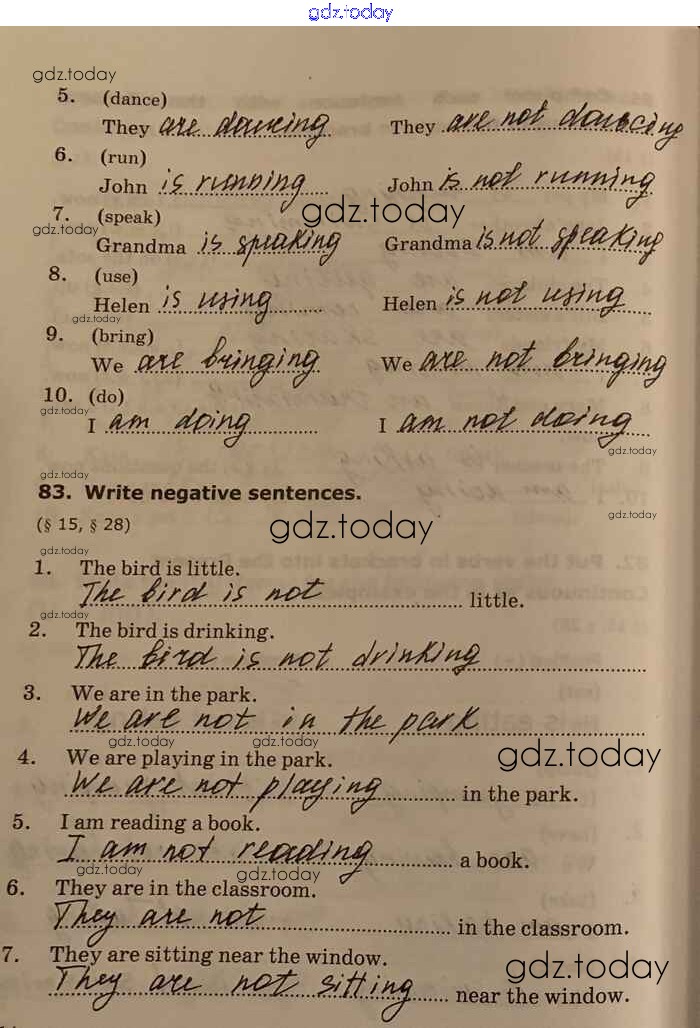 gdz.today
gdz.today
5. (dance)
They are dancing They are not dancing
gdz.today
6. (run)
John is running John is not running
gdz.today
7. (speak)
gdz.today
Grandma is speaking Grandma is not speaking
8. (use)
Helen is using Helen is not using
gdz.today
9. (bring)
We are bringing We are not bringing
10. (do)
gdz.today
I am doing I am not doing
gdz.today
gdz.today
83. Write negative sentences.
(§ 15, § 28) gdz.today
gdz.today
gdz.today
1. The bird is little.
The bird is not little.
gdz.today
2. The bird is drinking.
The bird is not drinking
3. We are in the park.
We are not in the park
gdz.today gdz.today gdz.today
4. We are playing in the park.
We are not playing in the park.
5. I am reading a book.
I am not reading a book.
gdz.today gdz.today
6. They are in the classroom.
They are not in the classroom.
7. They are sitting near the window.
gdz.today
They are not sitting near the window.